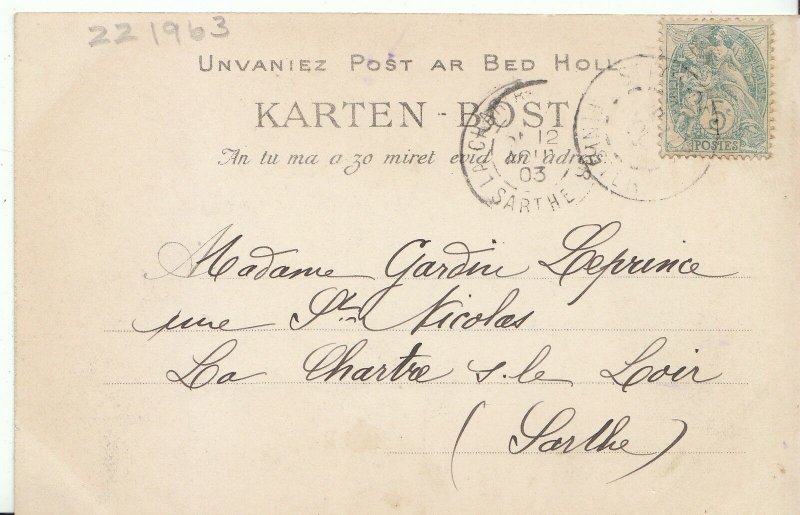 221963
UNVANIEZ POST AR BED HOLL
KARTEN-BOST
An tu ma a zo miret evid an adres.
LA CHARTRE
12
AOUT
03
SARTHE
POSTES
Madame Gardin Leprince
rue St. Nicolas
La Chartre s. le Loir
(Sarthe)